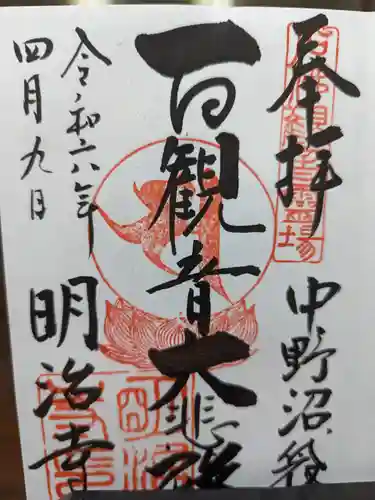 奉拝
中野沼袋
百観音大悲殿
明治寺
令和六年
四月九日